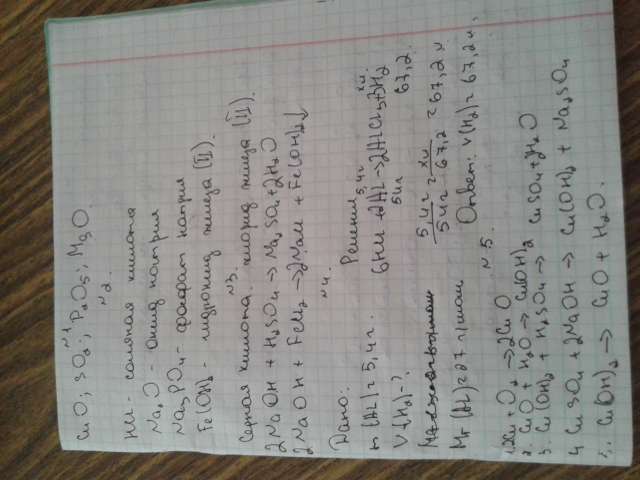 №1
CuO; SO₂; P₂O₅; MgO
№2.
HCl - соляная кислота
Na₂O - оксид натрия
Na₃PO₄ - фосфат натрия
Fe(OH)₂ - гидроксид железа (II).
№3.
Серная кислота. хлорид железа (II).
2NaOH + H₂SO₄ → Na₂SO₄ + 2H₂O
2NaOH + FeCl₂ → 2NaCl + Fe(OH)₂↓
№4.
Дано: Решение
m(Al) = 5,4г. 5,4г xл
6HCl + 2Al → 2AlCl₃ + 3H₂
V(H₂) - ? 54г 67,2.
Mr(Al) = 27 г/моль
5,4г = xл
54г 67,2 = 67,2 л.
Ответ: V(H₂) = 67,2 л.
№5.
1. 2Cu + O₂ → 2CuO
2. CuO + H₂O → Cu(OH)₂
3. Cu(OH)₂ + H₂SO₄ → CuSO₄ + 2H₂O
4 CuSO₄ + 2NaOH → Cu(OH)₂ + Na₂SO₄
5. Cu(OH)₂ → CuO + H₂O.